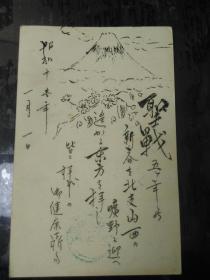 聖戦
五年の
新春を北支山西の
曠野に迎へ
遥かに東方を拝し
皆々様の
御健康を祈る
昭和十五年
一月一日